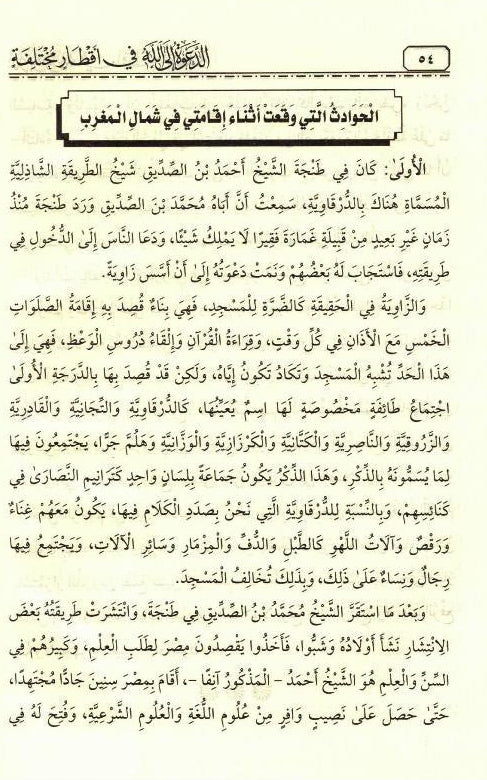 ٥٤
الدَّعْوَةُ إِلَى اللهِ فِي أَقْطَارٍ مُخْتَلِفَةٍ
الْحَوَادِثُ الَّتِي وَقَعَتْ أَثْنَاءَ إِقَامَتِي فِي شَمَالِ الْمَغْرِبِ
الْأُولَى: كَانَ فِي طَنْجَةَ الشَّيْخُ أَحْمَدُ بْنُ الصِّدِّيقِ شَيْخُ الطَّرِيقَةِ الشَّاذِلِيَّةِ
الْمُسَمَّاةِ هُنَاكَ بِالدَّرْقَاوِيَّةِ، سَمِعْتُ أَنَّ أَبَاهُ مُحَمَّدَ بْنَ الصِّدِّيقِ وَرَدَ طَنْجَةَ مُنْذُ
زَمَانٍ غَيْرِ بَعِيدٍ مِنْ قَبِيلَةِ غَمَارَةَ فَقِيرًا لَا يَمْلِكُ شَيْئًا، وَدَعَا النَّاسَ إِلَى الدُّخُولِ فِي
طَرِيقَتِهِ، فَاسْتَجَابَ لَهُ بَعْضُهُمْ وَنَمَتْ دَعْوَتُهُ إِلَى أَنْ أَسَّسَ زَاوِيَةً.
وَالزَّاوِيَةُ فِي الْحَقِيقَةِ كَالضَّرَّةِ لِلْمَسْجِدِ، فَهِيَ بِنَاءٌ قُصِدَ بِهِ إِقَامَةُ الصَّلَوَاتِ
الْخَمْسِ مَعَ الْأَذَانِ فِي كُلِّ وَقْتٍ، وَقِرَاءَةُ الْقُرْآنِ وَإِلْقَاءُ دُرُوسِ الْوَعْظِ، فَهِيَ إِلَى
هَذَا الْحَدِّ تُشْبِهُ الْمَسْجِدَ وَتَكَادُ تَكُونُ إِيَّاهُ، وَلَكِنْ قَدْ قُصِدَ بِهَا بِالدَّرَجَةِ الْأُولَى
اجْتِمَاعُ طَائِفَةٍ مَخْصُوصَةٍ لَهَا اسْمٌ يُعَيِّنُهَا، كَالدَّرْقَاوِيَّةِ وَالتِّجَانِيَّةِ وَالْقَادِرِيَّةِ
وَالزَّرُوقِيَّةِ وَالنَّاصِرِيَّةِ وَالْكَتَّانِيَّةِ وَالْكَرْزَازِيَّةِ وَالْوَزَّانِيَّةِ وَهَلُمَّ جَرًّا، يَجْتَمِعُونَ فِيهَا
لِمَا يُسَمُّونَهُ بِالذِّكْرِ، وَهَذَا الذِّكْرُ يَكُونُ جَمَاعَةً بِلِسَانٍ وَاحِدٍ كَتَرَانِيمِ النَّصَارَى فِي
كَنَائِسِهِمْ، وَبِالنِّسْبَةِ لِلدَّرْقَاوِيَّةِ الَّتِي نَحْنُ بِصَدَدِ الْكَلَامِ فِيهَا، يَكُونُ مَعَهُمْ غِنَاءٌ
وَرَقْصٌ وَآلَاتُ اللَّهْوِ كَالطَّبْلِ وَالدُّفِّ وَالْمِزْمَارِ وَسَائِرِ الْآلَاتِ، وَيَجْتَمِعُ فِيهَا
رِجَالٌ وَنِسَاءٌ عَلَى ذَلِكَ، وَبِذَلِكَ تُخَالِفُ الْمَسْجِدَ.
وَبَعْدَ مَا اسْتَقَرَّ الشَّيْخُ مُحَمَّدُ بْنُ الصِّدِّيقِ فِي طَنْجَةَ، وَانْتَشَرَتْ طَرِيقَتُهُ بَعْضَ
الِانْتِشَارِ نَشَأَ أَوْلَادُهُ وَشَبُّوا، فَأَخَذُوا يَقْصِدُونَ مِصْرَ لِطَلَبِ الْعِلْمِ، وَكَبِيرُهُمْ فِي
السِّنِّ وَالْعِلْمِ هُوَ الشَّيْخُ أَحْمَدُ - الْمَذْكُورُ آنِفًا -، أَقَامَ بِمِصْرَ سِنِينَ جَادًّا مُجْتَهِدًا،
حَتَّى حَصَلَ عَلَى نَصِيبٍ وَافِرٍ مِنْ عُلُومِ اللُّغَةِ وَالْعُلُومِ الشَّرْعِيَّةِ، وَفُتِحَ لَهُ فِي